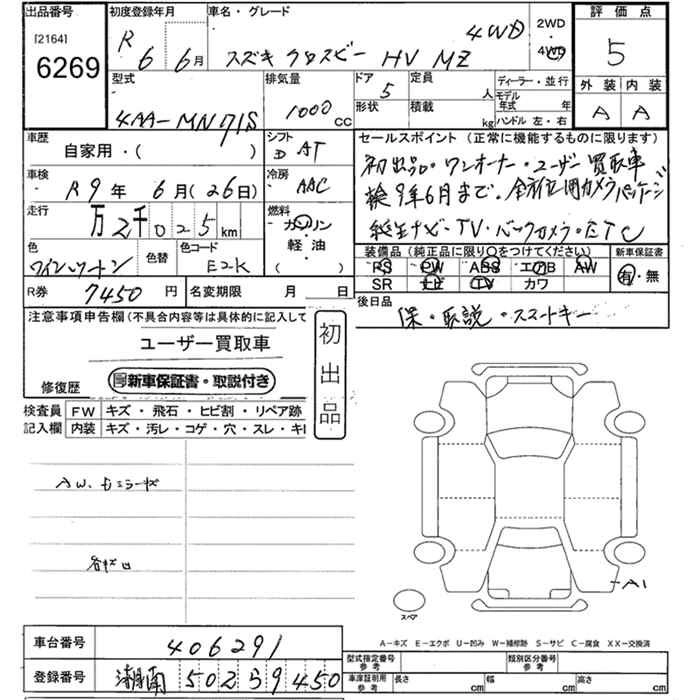 出品番号 初度登録年月 車名・グレード 2WD 評価点
[2164] 6269
R 6 6月 スズキ クロスビー HV MZ 4WD 4WD 5
型式 排気量 ドア 定員 ディーラー・並行 外装 内装
4AA-MN71S 1000 CC 5 人 モデル年式 年 A A
形状 積載 kg ハンドル 左・右
車歴 シフト セールスポイント (正常に機能するものに限ります)
自家用・( ) D AT 初出品・ワンオーナー・ユーザー買取車
車検 冷房 検9年6月まで・全方位用カメラパッケージ
R 9年 6月(26日) AAC
走行 燃料 純正ナビ・TV・バックカメラ・ETC
万 2千025km ガソリン
色 色替 色コード 軽油 装備品(純正品に限り○をつけてください) 新車保証書
ワインレッド E2K ( ) PS PW ABS エアB AW 有・無
SR ナビ TV カワ
R券 7450円 名変期限 月 日 後日品
保・取説・スマートキー
注意事項申告欄(不具合内容等は具体的に記入して
ユーザー買取車 初出品
新車保証書・取説付き
修復歴
検査員 FW キズ・飛石・ヒビ割・リペア跡
記入欄 内装 キズ・汚レ・コゲ・穴・スレ・キレ
AW、ミラーキズ
各キズ凹
A1
スペア
A-キズ E-エクボ U-凹み W-補修跡 S-サビ C-腐食 XX-交換済
車台番号 406291 型式指定番号 参考 類別区分番号 参考
登録番号 湘南 502 ら 9450 車庫証明用 参考 長さ cm 幅 cm 高さ cm